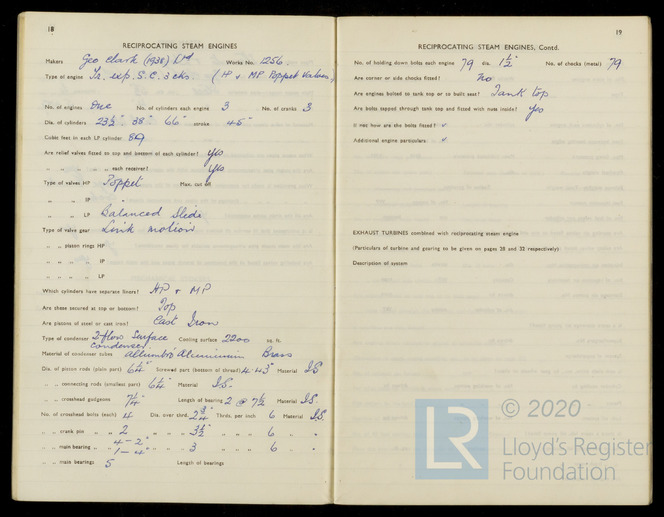 18
RECIPROCATING STEAM ENGINES
Makers Geo Clark (1938) Ltd Works No. 1256.
Type of engine Tr. exp. S.C. 3 cks. (HP & MP Poppet Valves)
No. of engines One No. of cylinders each engine 3 No. of cranks 3
Dia. of cylinders 23½" 38" 66" stroke 45"
Cubic feet in each LP cylinder 89
Are relief valves fitted to top and bottom of each cylinder? Yes
" " " " each receiver? Yes
Type of valves HP Poppet Max. cut off
" " IP "
" " LP Balanced Slide
Type of valve gear Link motion
" " piston rings HP
" " " " IP
" " " " LP
Which cylinders have separate liners? HP & MP
Are these secured at top or bottom? Top
Are pistons of steel or cast iron? Cast Iron
Type of condenser 2-flow Surface Cooling surface 2200 sq. ft.
Condenser
Material of condenser tubes Aluminium Brass
Dia. of piston rods (plain part) 6¼" Screwed part (bottom of thread) 4.43" Material
" " connecting rods (smallest part) 6¼" Material
" " crosshead gudgeons 7¼" Length of bearing 2 @ 7½ Material
No. of crosshead bolts (each) 4 Dia. over thrd. 2¾" Thrds. per inch 6 Material
" " crank pin " " 2 " " " 3½" " " " 6 " "
" " main bearing " " 4 - 2" 1 - 4" " " " 3 " " " 6 " "
" " main bearings 5 Length of bearings
19
RECIPROCATING STEAM ENGINES, Contd.
No. of holding down bolts each engine 79 dia. 1½" No. of chocks (metal) 79
Are corner or side chocks fitted? No
Are engines bolted to tank top or to built seat? Tank top
Are bolts tapped through tank top and fitted with nuts inside? Yes
If not how are the bolts fitted? ✓
Additional engine particulars ✓
EXHAUST TURBINES combined with reciprocating steam engine
(Particulars of turbine and gearing to be given on pages 20 and 22 respectively)
Description of system
LR
© 2020
Lloyd's Register
Foundation